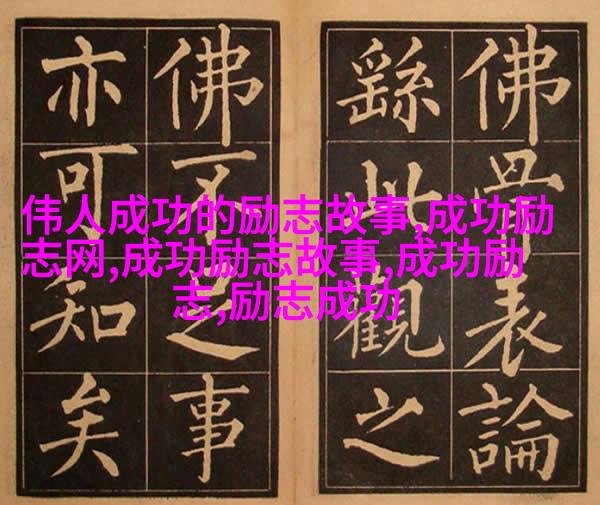 佛骨表論
繇此觀之
佛不足事
亦可知矣
伟人成功的励志故事,成功励
志网,成功励志故事,成功励
志,励志成功